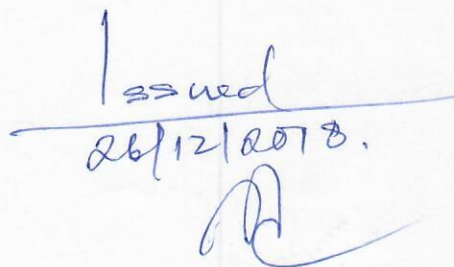 Issued
26/12/2018.